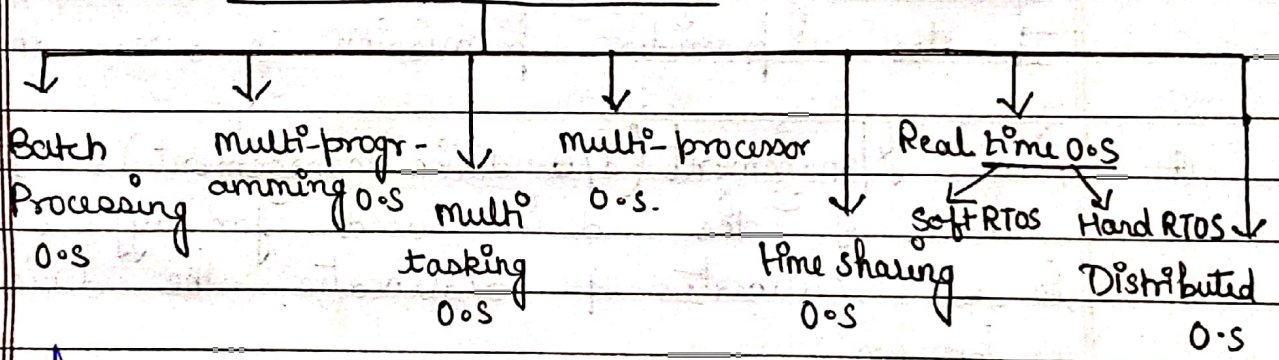 Batch
Processing
O.S
Multi-progr-
amming O.S
Multi
tasking
O.S
Multi-processor
O.S.
time sharing
O.S
Real time O.S
Soft RTOS Hard RTOS
Distributed
O.S